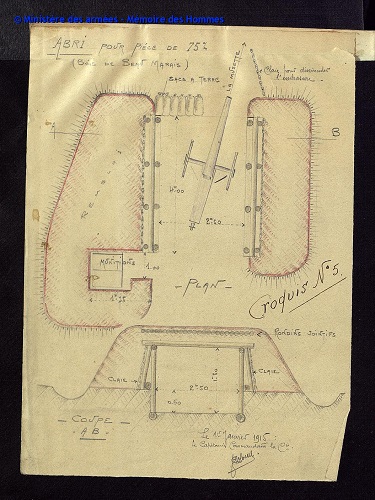 © Ministère des armées - Mémoire des Hommes
ABRI POUR PIÈCE DE 75m
(Bois de Beau Marais)
SACS A TERRE
LA MUSETTE
Claie pour dissimuler
l'embrasure
B
4m00
2m50
MUNITIONS
1.00
1m25
- PLAN -
Croquis No 5.
RONDINS JOINTIFS
CLAIE
CLAIE
2m50
0.50
- COUPE -
AB
Le 15 Janvier 1915
le Capitaine Commandant la Cie